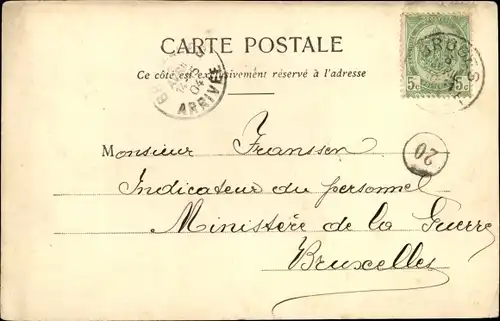 CARTE POSTALE
Ce côté est exclusivement réservé à l'adresse
BRUGES
5c 5c
ARRIVÉE
04
20
Monsieur Franssen
Indicateur du personnel
Ministère de la Guerre
Bruxelles